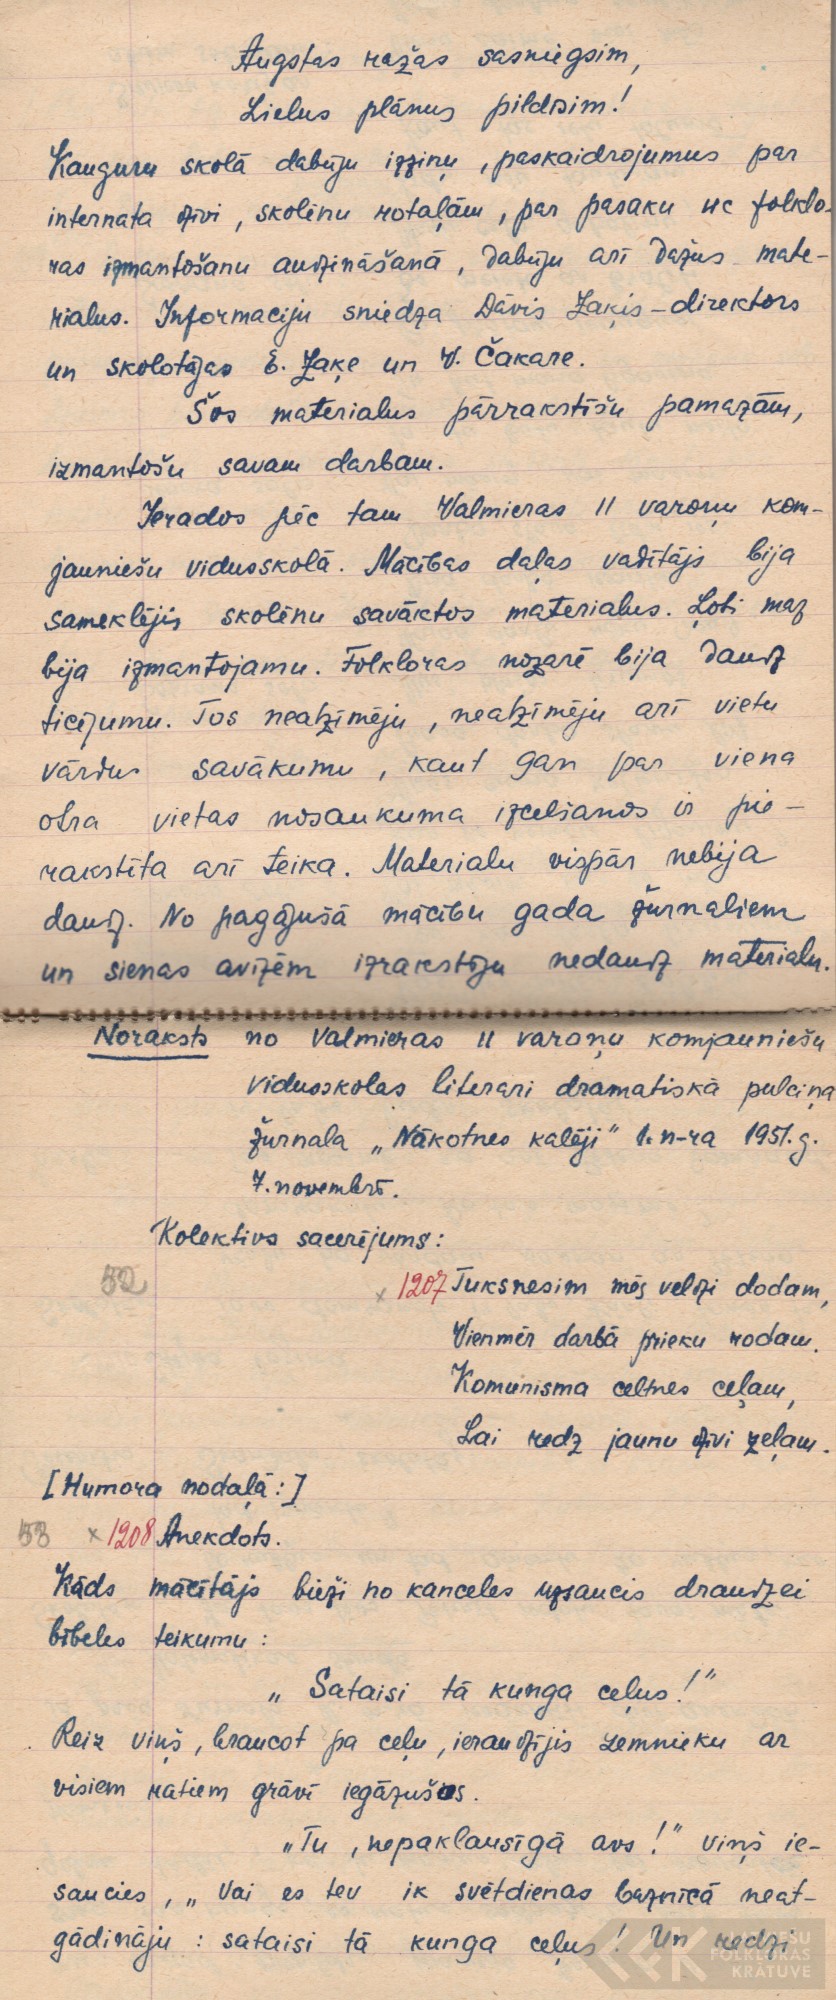 Augstas ražas sasniegsim,
Lielus plānus pildīsim!
Kauguru skolā dabūju izziņu, paskaidrojumus par
internata dzīvi, skolēnu rotaļām, par pasaku uc folklo-
ras izmantošanu audzināšanā, dabūju arī dažus mate-
rialus. Informaciju sniedza Dāvis Zaķis - direktors
un skolotājas E. Zaķe un V. Čakare.
Šos materialus pārrakstīšu pamazām,
izmantošu savam darbam.
Ierados pēc tam Valmieras II varoņu kom-
jauniešu vidusskolā. Mācības daļas vadītājs bija
sameklējis skolēnu savāktos materialus. Ļoti maz
bija izmantojamu. Folkloras nozarē bija daudz
ticējumu. Tos neatzīmēju, neatzīmēju arī vietu
vārdus savākumu, kaut gan par viena
otra vietas nosaukuma izcelšanos ir pie-
rakstīta arī teika. Materialu vispār nebija
daudz. No pagājušā mācību gada žurnaliem
un sienas avīzēm izrakstīju nedaudz materialu.
Noraksts no Valmieras II varoņu komjauniešu
vidusskolas literari dramatiskā pulciņa
žurnala „Nākotnes kalēji" 1. n-ra 1951. g.
7. novembrī.
Kolektivs sacerējums:
52 × 1207 Tuksnesim mēs veldzi dodam,
Vienmēr darbā prieku rodam.
Komunisma celtnes ceļam,
Lai redz jaunu dzīvi zeļam.
[Humora nodaļā:]
53 × 1208 Anekdots.
Kāds mācītājs bieži no kanceles uzsaucis draudzei
bībeles teikumu:
„Sataisi tā kunga ceļus!"
Reiz viņš, braucot pa ceļu, ieraudzījis zemnieku ar
visiem ratiem grāvī iegāzušos.
„Tu, nepaklausīgā avs!" viņš ie-
saucies, „Vai es tev ik svētdienas baznīcā neat-
gādināju: sataisi tā kunga ceļus! Un redzi
LATVIEŠU
FOLKLORAS
KRĀTUVE